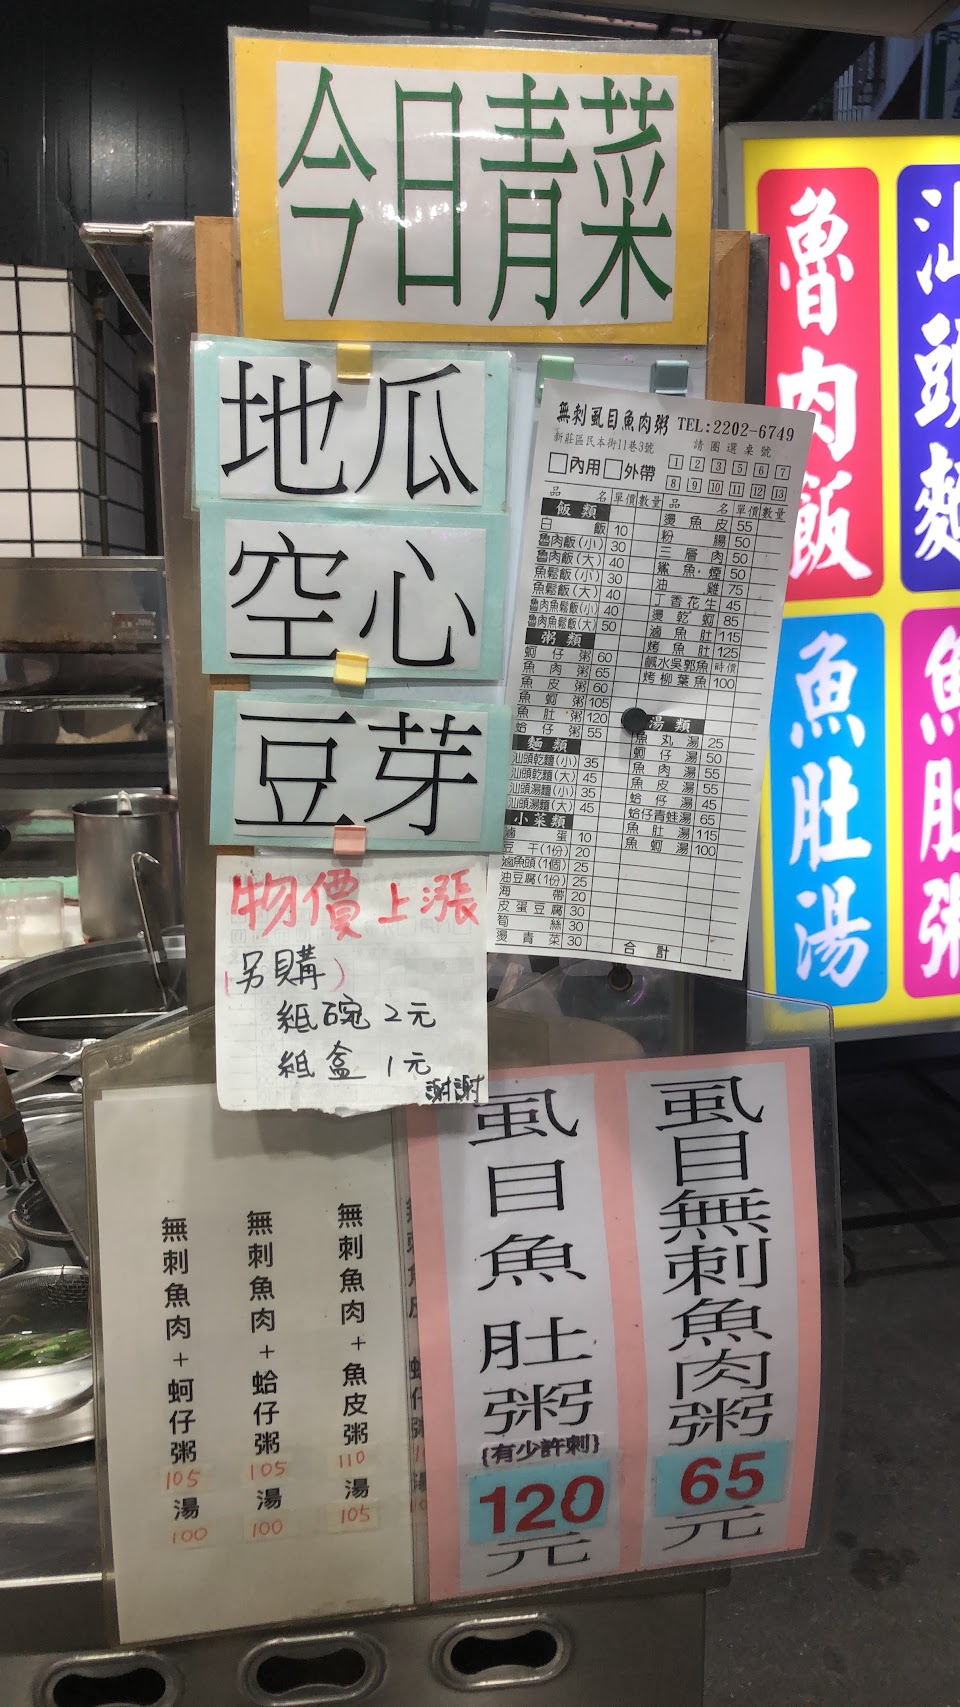 今日青菜
地瓜
空心
豆芽
物價上漲
(另購)
紙碗 2元
紙盒 1元
謝謝
無刺虱目魚肉粥 TEL:2202-6749
新莊區民本街11巷3號
請圈選桌號
□內用□外帶
1 2 3 5 6 7
8 9 10 11 12 13
品名 單價 數量
飯類
白飯 10
魯肉飯(小) 30
魯肉飯(大) 40
魚鬆飯(小) 30
魚鬆飯(大) 40
魯肉魚鬆飯(小) 40
魯肉魚鬆飯(大) 50
粥類
蚵仔粥 60
魚肉粥 65
魚皮粥 60
魚蚵粥 105
魚肚粥 120
蛤仔粥 55
麵類
汕頭乾麵(小) 35
汕頭乾麵(大) 45
汕頭湯麵(小) 35
汕頭湯麵(大) 45
小菜類
滷蛋 10
豆干(1份) 20
滷魚頭(1個) 25
油豆腐(1份) 25
海帶 20
皮蛋豆腐 30
筍絲 30
燙青菜 30
品名 單價 數量
燙魚皮 55
粉腸 50
三層肉 50
鯊魚煙 50
油雞 75
丁香花生 45
燙乾蚵 85
滷魚肚 115
烤魚肚 125
鹹水吳郭魚 時價
烤柳葉魚 100
湯類
魚丸湯 25
蚵仔湯 50
魚肉湯 55
魚皮湯 55
蛤仔湯 45
蛤仔青蛙湯 65
魚肚湯 115
魚蚵湯 100
合計
魯肉飯
汕頭麵
魚肚湯
魚肚粥
虱目無刺魚肉粥
65
元
虱目魚肚粥
{有少許刺}
120
元
無刺魚肉+魚皮粥
110
湯
105
無刺魚肉+蛤仔粥
105
湯
100
無刺魚肉+蚵仔粥
105
湯
100